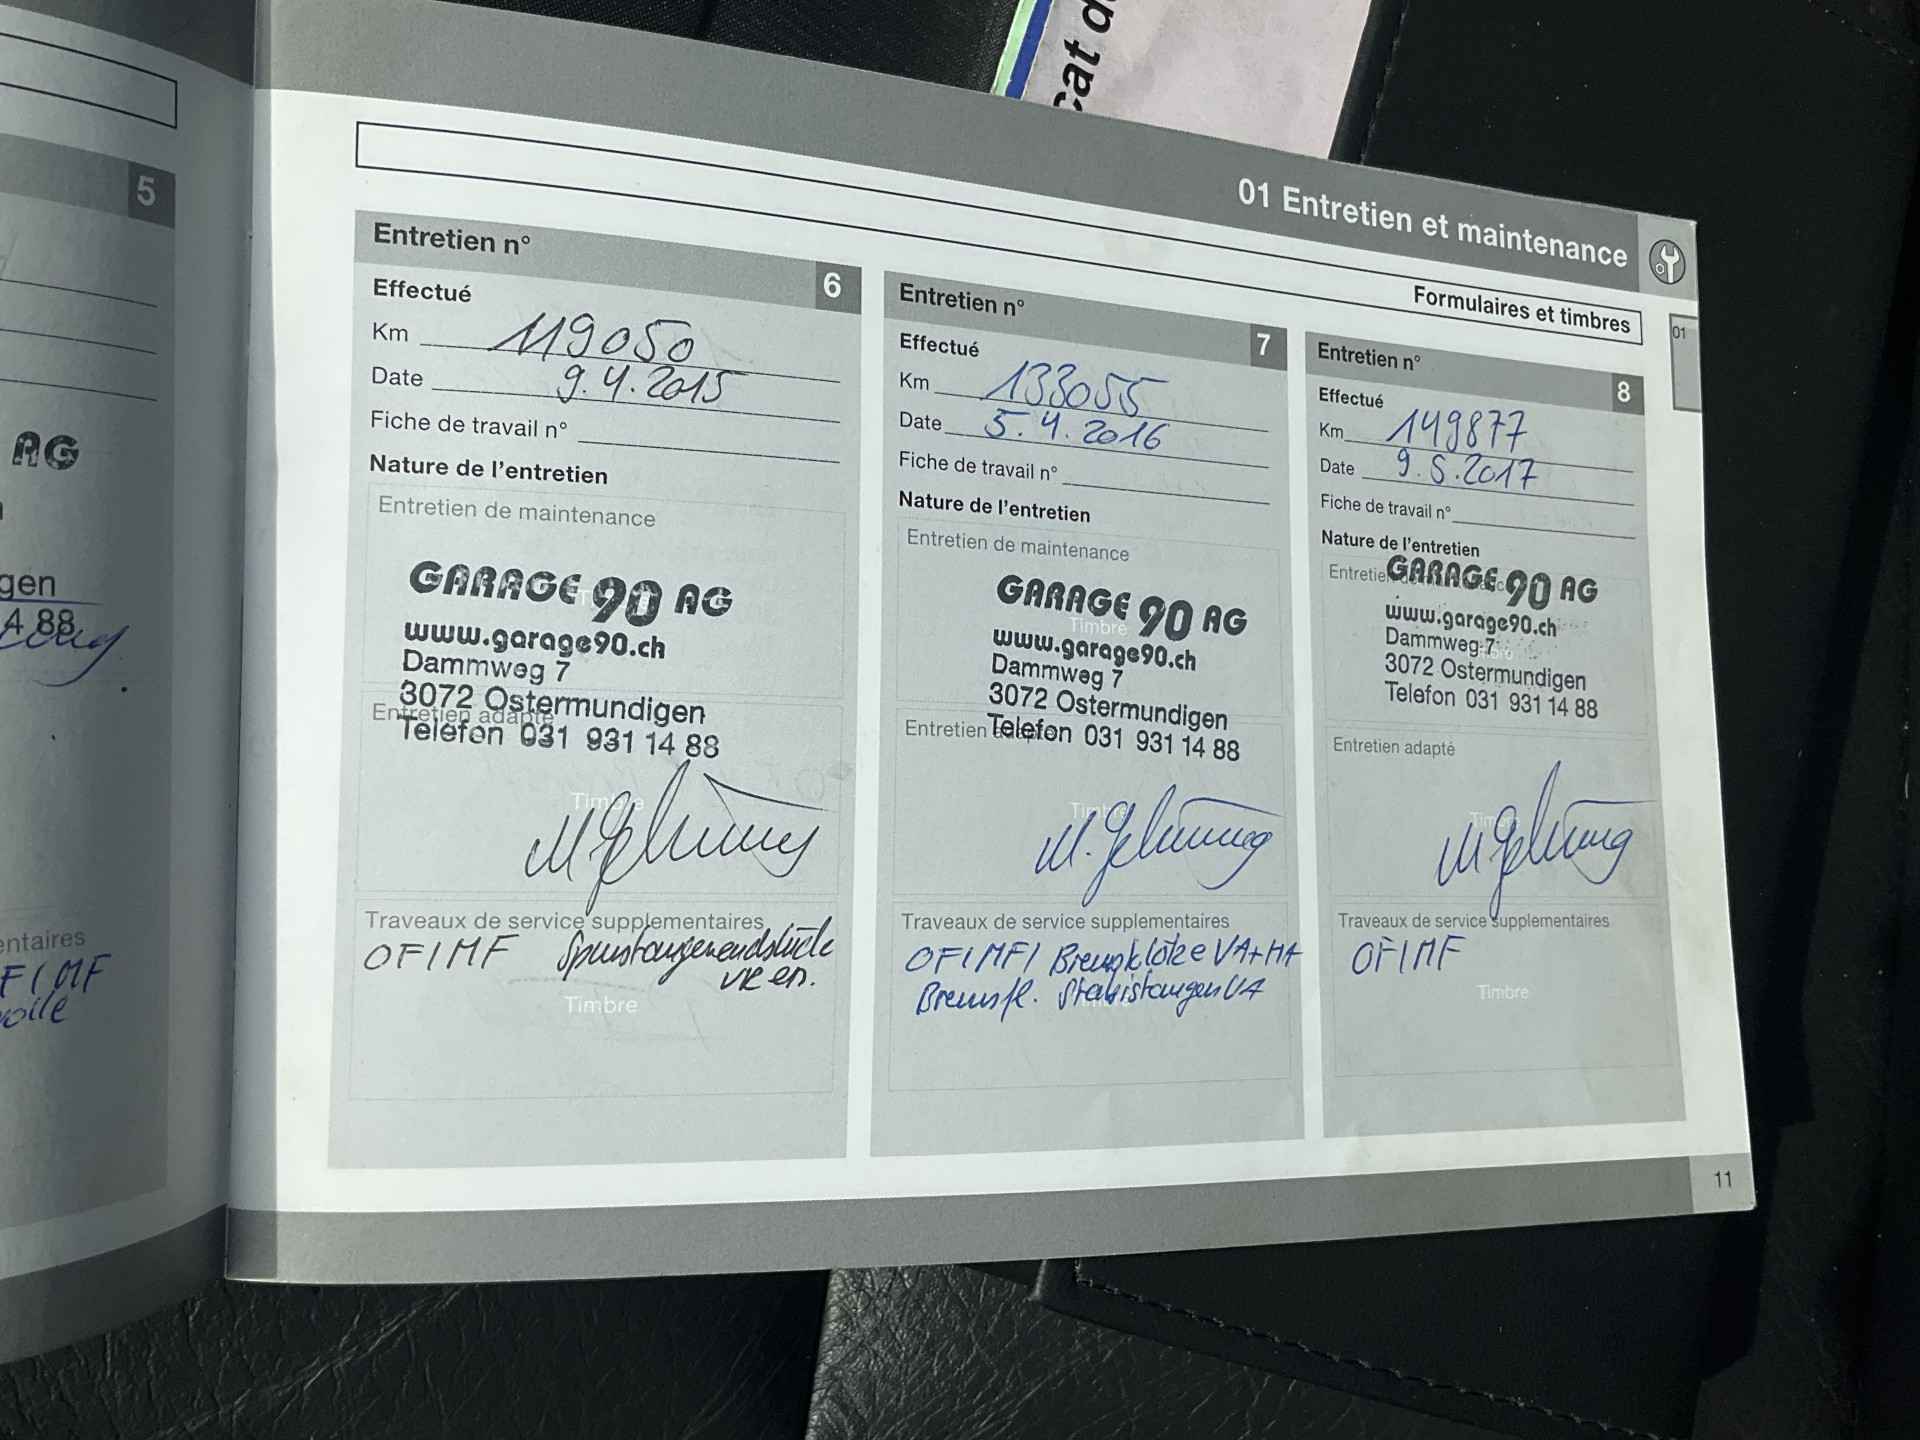 cat d
5
AG
gen
4 88
entaires
FIMF
01 Entretien et maintenance
Formulaires et timbres
01
Entretien n°
6
Effectué
Km 119050
Date 9.4.2015
Fiche de travail n°
Nature de l'entretien
Entretien de maintenance
Timbre
GARAGE 90 AG
www.garage90.ch
Dammweg 7
3072 Ostermundigen
Entretien adapté
Telefon 031 931 14 88
Timbre
Traveaux de service supplementaires
OFIMF Spurstangenendstücke
Timbre
Entretien n°
7
Effectué
Km 133055
Date 5.4.2016
Fiche de travail n°
Nature de l'entretien
Entretien de maintenance
GARAGE 90 AG
Timbre
www.garage90.ch
Dammweg 7
3072 Ostermundigen
Entretien adapté
Telefon 031 931 14 88
Timbre
Traveaux de service supplementaires
OFIMF/ Bremsklötze VA+HA
Bremsfl. Stabistangen VA
Timbre
Entretien n°
8
Effectué
Km 149877
Date 9.5.2017
Fiche de travail n°
Nature de l'entretien
Entretien
GARAGE 90 AG
www.garage90.ch
Dammweg 7
Timbre
3072 Ostermundigen
Telefon 031 931 14 88
Entretien adapté
Timbre
Traveaux de service supplementaires
OFIMF
Timbre
11